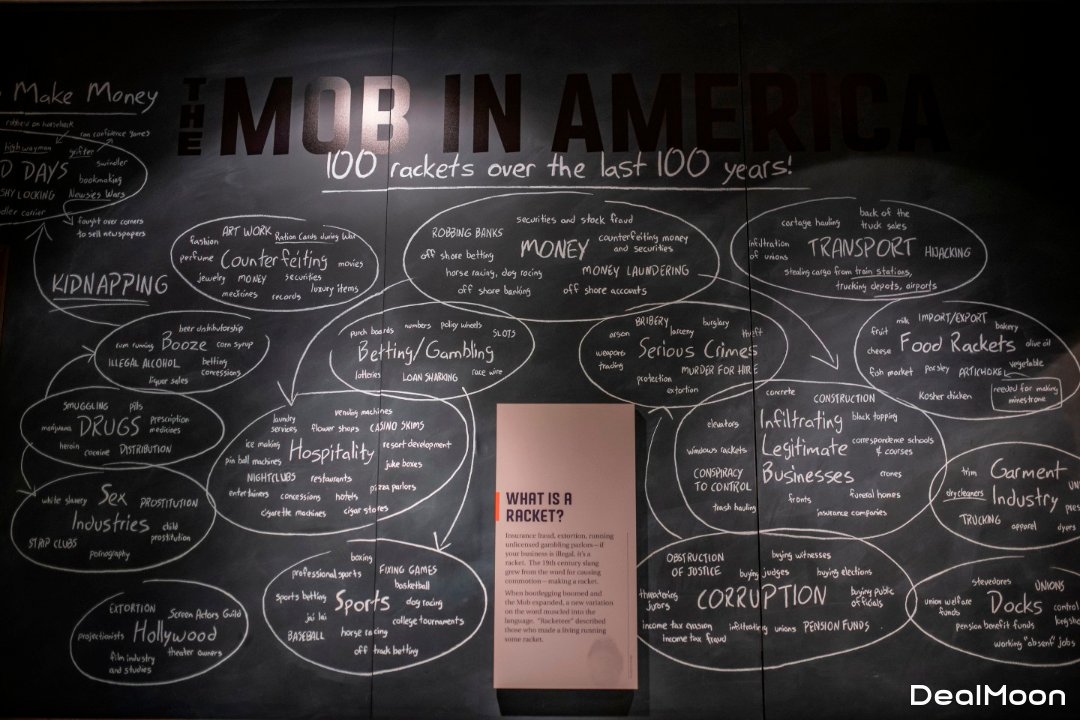 Make Money
THE MOB IN AMERICA
100 rackets over the last 100 years!
robbers on horseback
run confidence games
highwayman
grifter
D DAYS
swindler
bookmaking
SHY LOCKING
Newsies Wars
fought over corners
to sell newspapers
KIDNAPPING
ART WORK
Ration Cards during War
fashion
perfume
Counterfeiting
movies
jewelry
MONEY
securities
luxury items
medicines
records
securities and stock fraud
ROBBING BANKS
MONEY
counterfeiting money
and securities
off shore betting
horse racing, dog racing
MONEY LAUNDERING
off shore banking
off shore accounts
cartage hauling
back of the
truck sales
infiltration
of unions
TRANSPORT
HIJACKING
stealing cargo from train stations,
trucking depots, airports
beer distributorship
rum running
Booze
corn syrup
ILLEGAL ALCOHOL
betting
concessions
liquor sales
punch boards
numbers
policy wheels
SLOTS
Betting/Gambling
lotteries
LOAN SHARKING
race wire
BRIBERY
burglary
arson
larceny
theft
weapons
trading
Serious Crimes
MURDER FOR HIRE
protection
extortion
milk
IMPORT/EXPORT
fruit
bakery
cheese
Food Rackets
olive oil
fish market
parsley
ARTICHOKE
vegetable
Kosher chicken
needed for making
minestrone
SMUGGLING
pills
marijuana
DRUGS
prescription
medicines
heroin
cocaine
DISTRIBUTION
laundry
services
vending machines
flower shops
CASINO SKIMS
ice making
Hospitality
resort development
pin ball machines
juke boxes
NIGHTCLUBS
restaurants
pizza parlors
entertainers
concessions
hotels
cigarette machines
cigar stores
concrete
CONSTRUCTION
elevators
Infiltrating
Legitimate
Businesses
black topping
windows rackets
correspondence schools
& courses
CONSPIRACY
TO CONTROL
cranes
fronts
funeral homes
trash hauling
insurance companies
trim
Garment
Industry
dry cleaners
TRUCKING
apparel
dyers
white slavery
Sex
Industries
PROSTITUTION
child
prostitution
STRIP CLUBS
pornography
WHAT IS A
RACKET?
Insurance fraud, extortion, running
unlicensed gambling parlors – if
your business is illegal, it's a
racket. The 19th century slang
grew from the word for causing
commotion – making a racket.
When bootlegging boomed and
the Mob expanded, a new variation
on the word muscled into the
language. "Racketeer" described
those who made a living running
some racket.
boxing
professional sports
FIXING GAMES
basketball
sports betting
Sports
dog racing
jai lai
college tournaments
BASEBALL
horse racing
off track betting
OBSTRUCTION
OF JUSTICE
buying witnesses
buying judges
buying elections
threatening
jurors
CORRUPTION
buying public
officials
income tax evasion
infiltrating unions
PENSION FUNDS
income tax fraud
stevedores
UNIONS
union welfare
funds
Docks
control
pension benefit funds
working "absent" jobs
EXTORTION
Screen Actors Guild
projectionists
Hollywood
theater owners
film industry
and studios
DealMoon